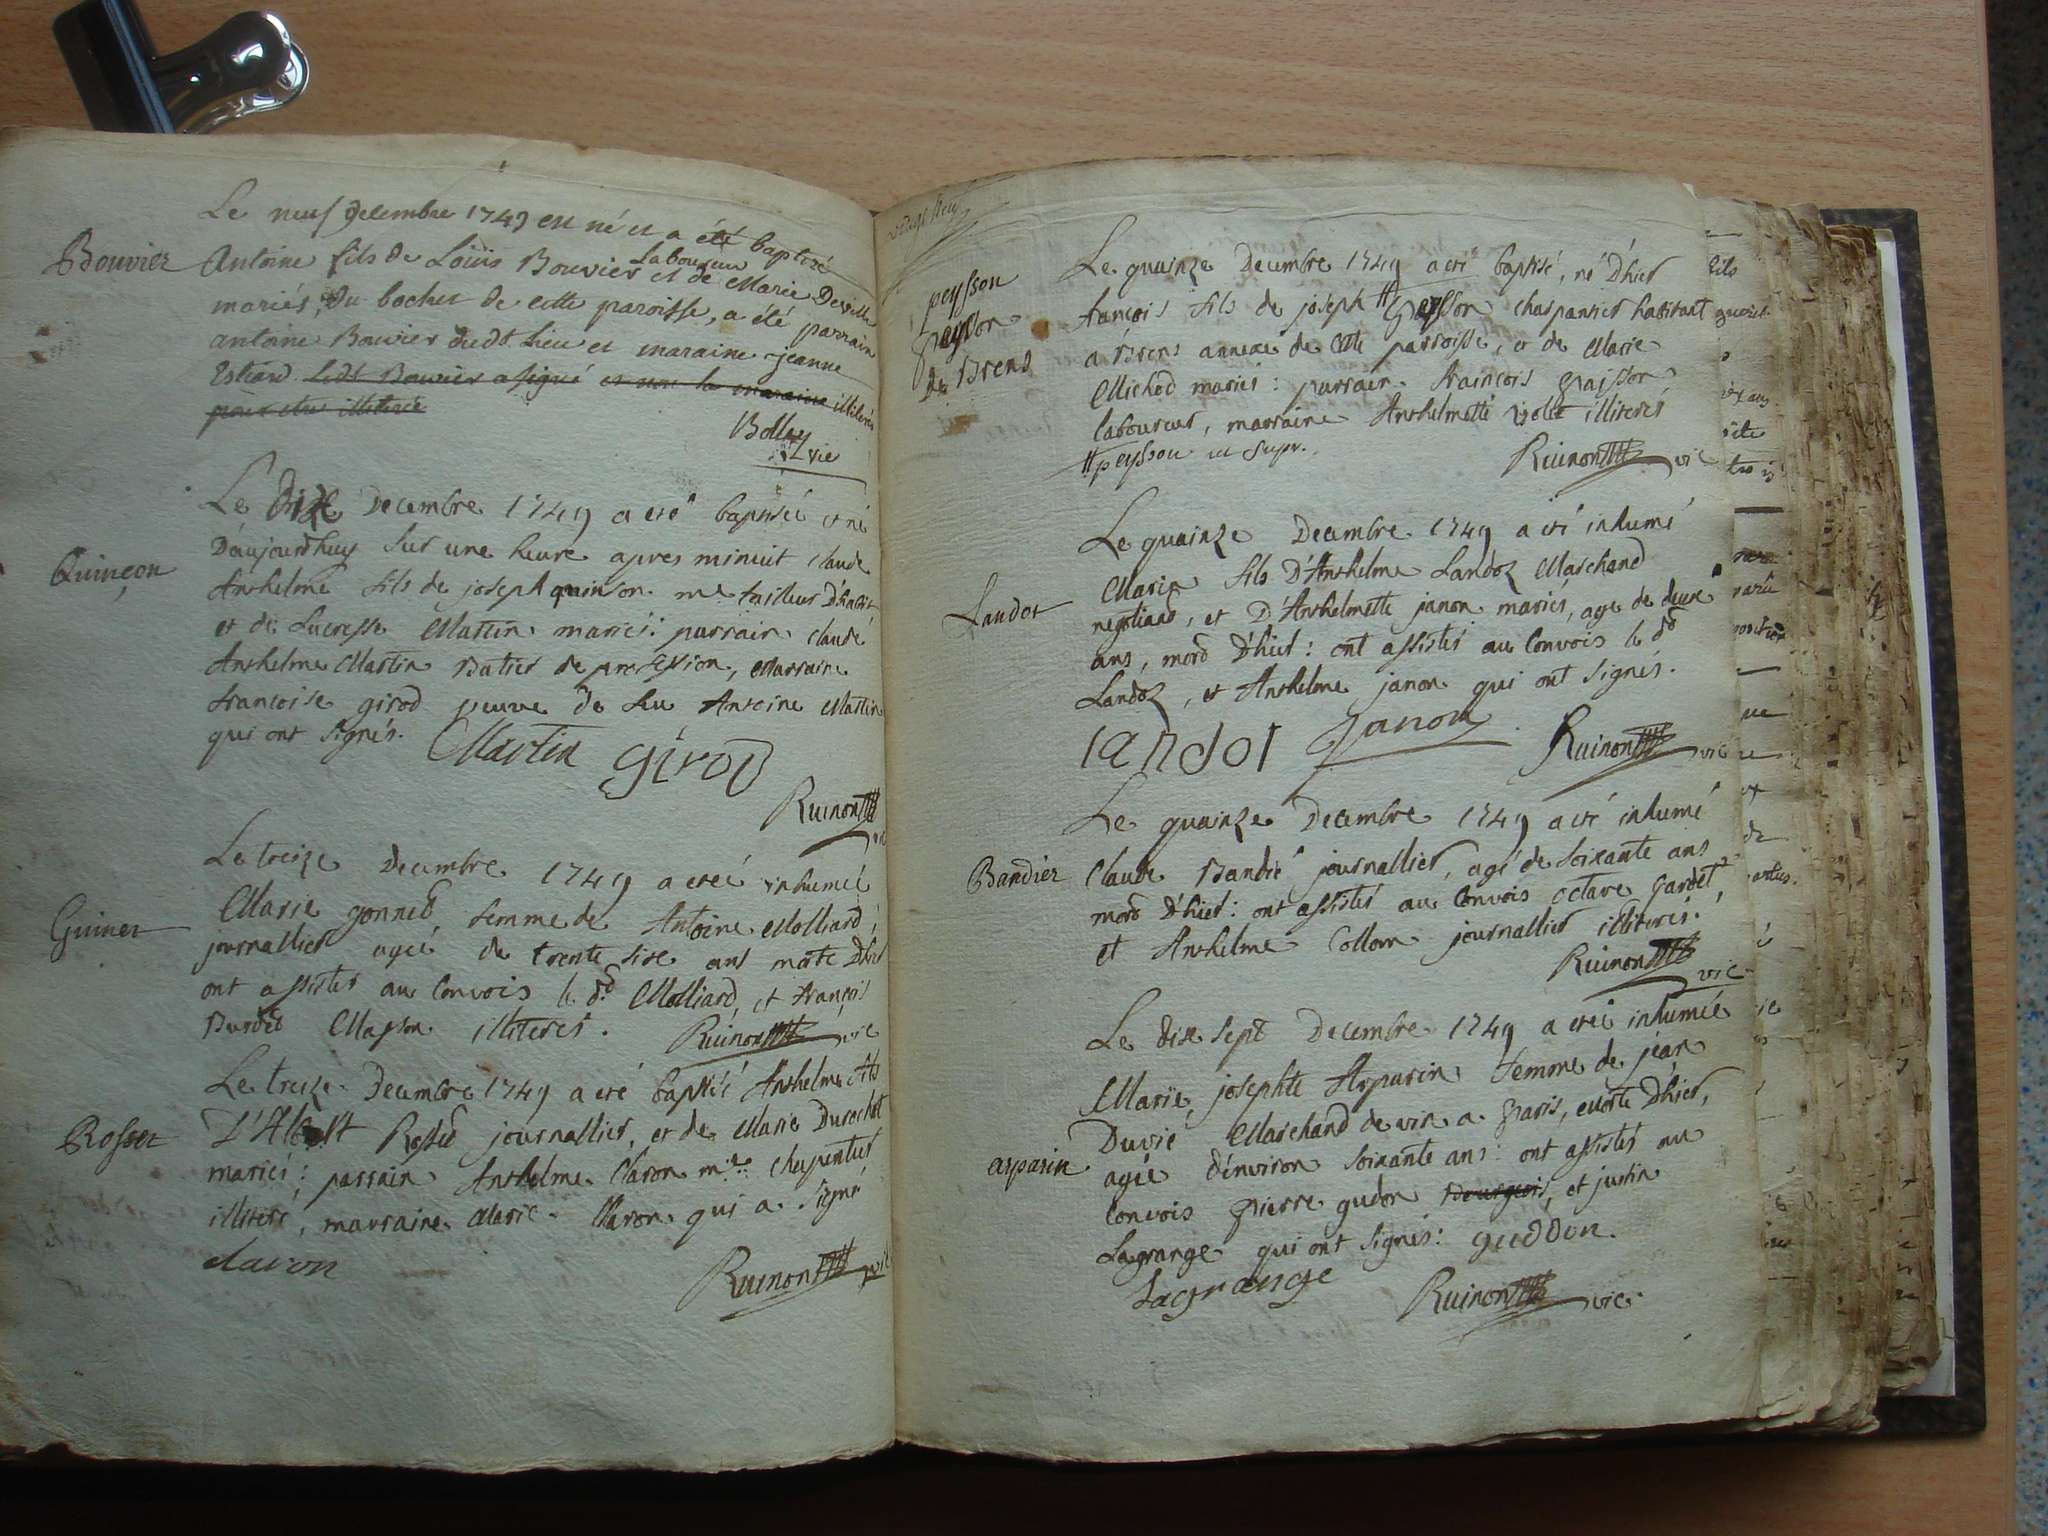 Le neuf decembre 1749 est né et a été baptisé
Bouvier
Antoine fils de Loüis Bouvier laboureur et de Marie Deville
mariés, du bochet de cette paroisse, a été parrain
antoine Bouvier dudt. lieu et maraine jeanne
ledt Bouvier a signé et non la maraine illiterés
pour etre illiterée
Bollay
vic
Le dixe Decembre 1749 a eté baptisé et né
D'aujourdhuy sur une heure apres minuit Claude
Quinçon
Anthelme fils de joseph quinson me tailleur D'habit
et de Lucresse Martin mariés: parrain Claude
Anthelme Martin Batier de profession, Marraine
françoise girod veuve de feu Antoine Martin
qui ont signés. Martin girod
Ruinon
vic
Le treize Decembre 1749 a eteé inhumeé
Marie gonned femme de Antoine Molliard,
Guinet
journallier ageé de trente sixe ans morte D'hier
ont assistés au Convois le dd Molliard, et françois
Burdet Masson illiterés. Ruinon vic
Le treize Decembre 1749 a eté baptisé Anthelme fils
Rosset
D'Albert Rossed journallier, et de Marie Durochat
mariés: parrain Anthelme Claron me Charpentier
illiteré, marraine Marie Claron qui a signé
claron
Ruinon vic
peysson
Peysson
de Brens
Le quainze Decembre 1749 a eté baptisé, né D'hier
françois fils de joseph # Peysson charpantier habitant
a Brens annexe de cete parroisse, et de Marie
Michod mariés: parrain françois paisson
laboureur, marraine Anthelmette Volle illiterés
# peysson ut supr. Ruinon vic
Le quainze Decembre 1749 a eté inhumé
Marin fils D'Anthelme Landoz Marchand
Landot
negotiand, et D'Anthelmette janon mariés, age de deux
ans, mord D'hier: ont assistés au Convois le dd
Landoz, et Anthelme janon qui ont signés.
landot Janon Ruinon vic
Le quainze Decembre 1749 a eté inhumé
Bandier
Claude Bandié journallier, agé de soixante ans
mord D'hier: ont assistés au Convois octave gardet,
et Anthelme Collom journallier illiterés.
Ruinon vic
Le dixe sept Decembre 1749 a eteé inhumeé
Marie josephte Arparin femme de jean
Duvié Marchand de vin a Paris, morte D'hier,
arparin
ageé d'environ soixante ans: ont assistés au
Convois pierre gudon Bourgeois, et justin
Lagrange qui ont signés: guddon.
Lagrange Ruinon vic